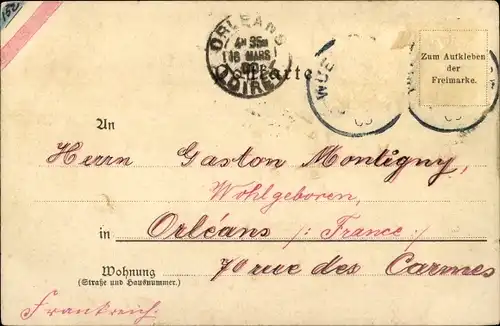 152
ORLEANS
4E 35M
16 MARS
LOIRET
WUE
Zum Aufkleben
der
Freimarke.
An
Herrn Gaston Montigny,
Wohlgeboren,
in Orléans /: France :/
Wohnung
(Straße und Hausnummer.)
70 rue des Carmes
Frankreich.